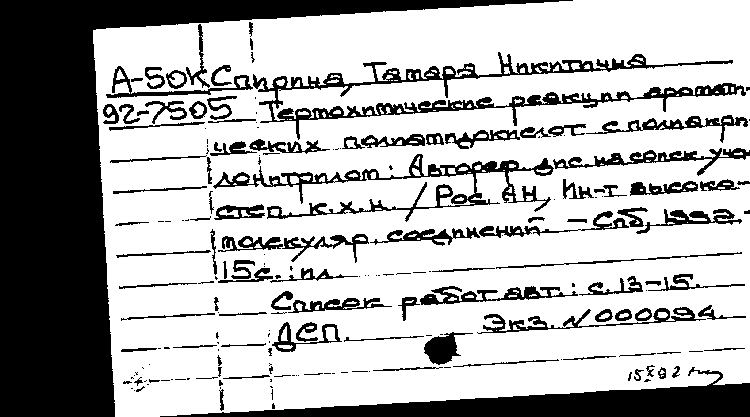 А-50К Спирина, Тамара Никитична
92-7505 Термохимические реакции аромати-
ческих полиамидокислот с полиакри-
лонитрилом: Автореф. дис. на соиск. учен.
степ. к.х.н. / Рос. АН, Ин-т высоко-
молекуляр. соединений. - Спб, 1992. -
15с.: ил.
Список работ авт.: с. 13-15.
ДСП. Экз. N 000094.
15 X 92